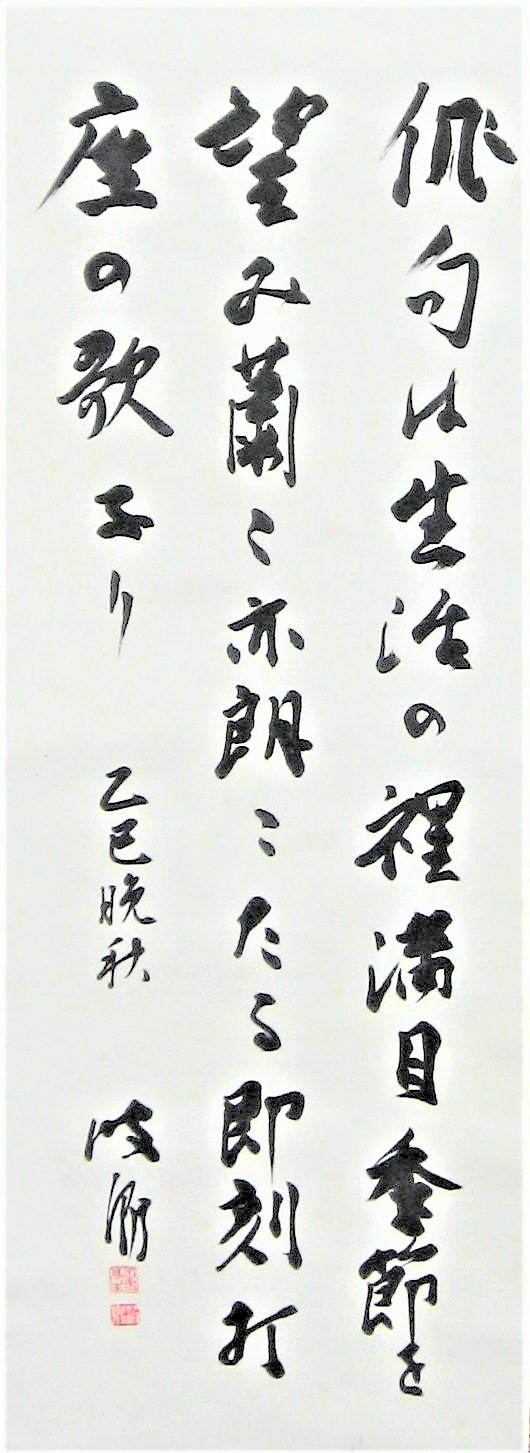 俳句は生活の裡満目季節を
望み蕭〻亦朗〻たる即刻打
座の歌なり
乙巳晩秋
波郷